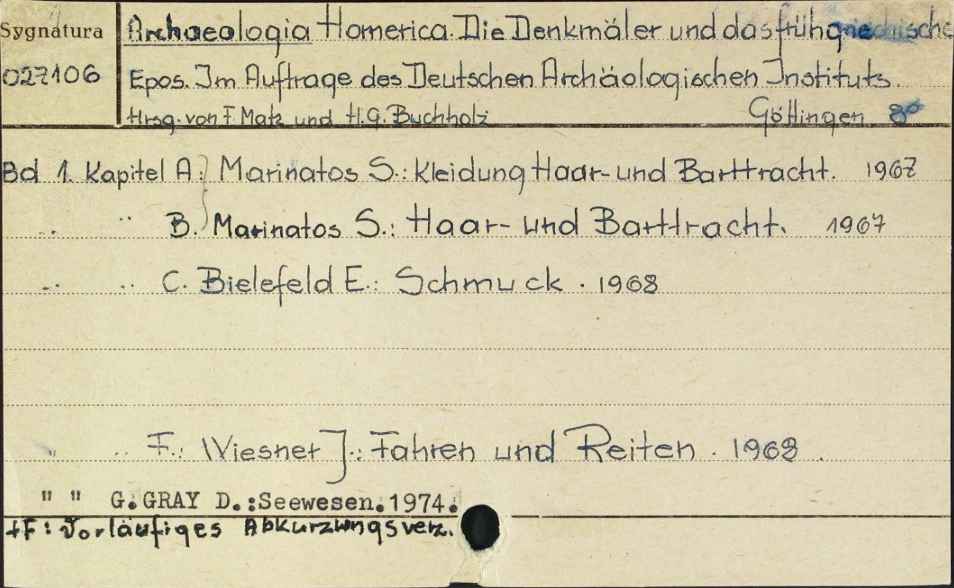 Sygnatura
027106
Archaeologia Homerica. Die Denkmäler und das frühgriechische
Epos. Im Auftrage des Deutschen Archäologischen Instituts.
Hrsg. von F. Matz und H.G. Buchholz Göttingen 8°
Bd 1. Kapitel A. Marinatos S.: Kleidung Haar- und Barttracht. 1967
" " B. Marinatos S.: Haar- und Barttracht. 1967
" " C. Bielefeld E.: Schmuck. 1968
" " F.: Wiesner J.: Fahren und Reiten. 1968.
" " G. GRAY D.:Seewesen.1974.
+F: Vorläufiges Abkurzungsverz.